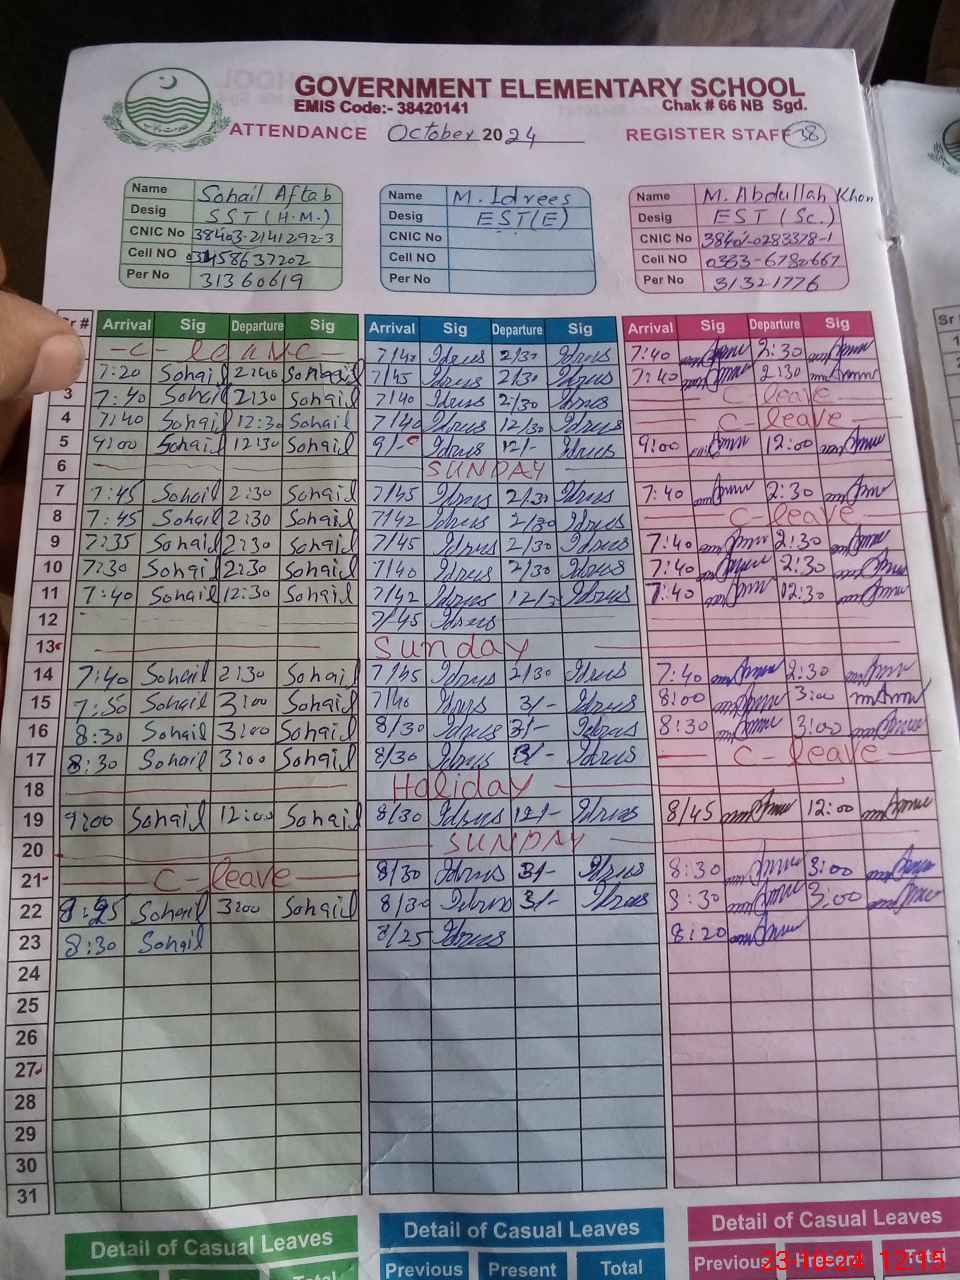 GOVERNMENT ELEMENTARY SCHOOL
EMIS Code:- 38420141 Chak # 66 NB Sgd.
ATTENDANCE October 2024 REGISTER STAFF 38
Name Sohail Aftab Name M. Idrees Name M. Abdullah Khan
Desig SST (H.M.) Desig EST(E) Desig EST (Sc.)
CNIC No 38403-2141292-3 CNIC No CNIC No 38401-0283378-1
Cell NO 03458637202 Cell NO Cell NO 0333-6780667
Per No 31360619 Per No Per No 31321776
Sr # Arrival Sig Departure Sig Arrival Sig Departure Sig Arrival Sig Departure Sig
-C- leave- 7/40 Idrees 2/30 Idrees 7:40 2:30
7:20 Sohail 2:40 Sohail 7/45 Idrees 2/30 Idrees 7:40 2:30
3 7:40 Sohail 2:30 Sohail 7/40 Idrees 2/30 Idrees C-leave
4 7:40 Sohail 12:30 Sohail 7/40 Idrees 12/30 Idrees C-leave
5 9:00 Sohail 12:30 Sohail 9/- Idrees 12/- Idrees 9:00 12:00
6 SUNDAY
7 7:45 Sohail 2:30 Sohail 7/45 Idrees 2/30 Idrees 7:40 2:30
8 7:45 Sohail 2:30 Sohail 7/42 Idrees 2/30 Idrees C-leave
9 7:35 Sohail 2:30 Sohail 7/45 Idrees 2/30 Idrees 7:40 2:30
10 7:30 Sohail 2:30 Sohail 7/40 Idrees 2/30 Idrees 7:40 2:30
11 7:40 Sohail 12:30 Sohail 7/42 Idrees Idrees 7:40 12:30
12 7/45 Idrees
13 Sunday
14 7:40 Sohail 2:30 Sohail 7/45 Idrees 2/30 Idrees 7:40 2:30
15 7:50 Sohail 3:00 Sohail 7/40 Idrees 3/- Idrees 8:00 3:00
16 8:30 Sohail 3:00 Sohail 8/30 Idrees 3/- Idrees 8:30 3:00
17 8:30 Sohail 3:00 Sohail 8/30 Idrees 3/- Idrees C-leave
18 Holiday
19 9:00 Sohail 12:00 Sohail 8/30 Idrees 12/- Idrees 8/45 12:00
20 SUNDAY
21 C-leave 8/30 Idrees 3/- Idrees 8:30 3:00
22 8:25 Sohail 3:00 Sohail 8/30 Idrees 3/- Idrees 8:30 3:00
23 8:30 Sohail 8/25 Idrees 8:20
24
25
26
27
28
29
30
31
Detail of Casual Leaves Detail of Casual Leaves Detail of Casual Leaves
Total Previous Present Total Previous Present Total
23-10-24 12:15